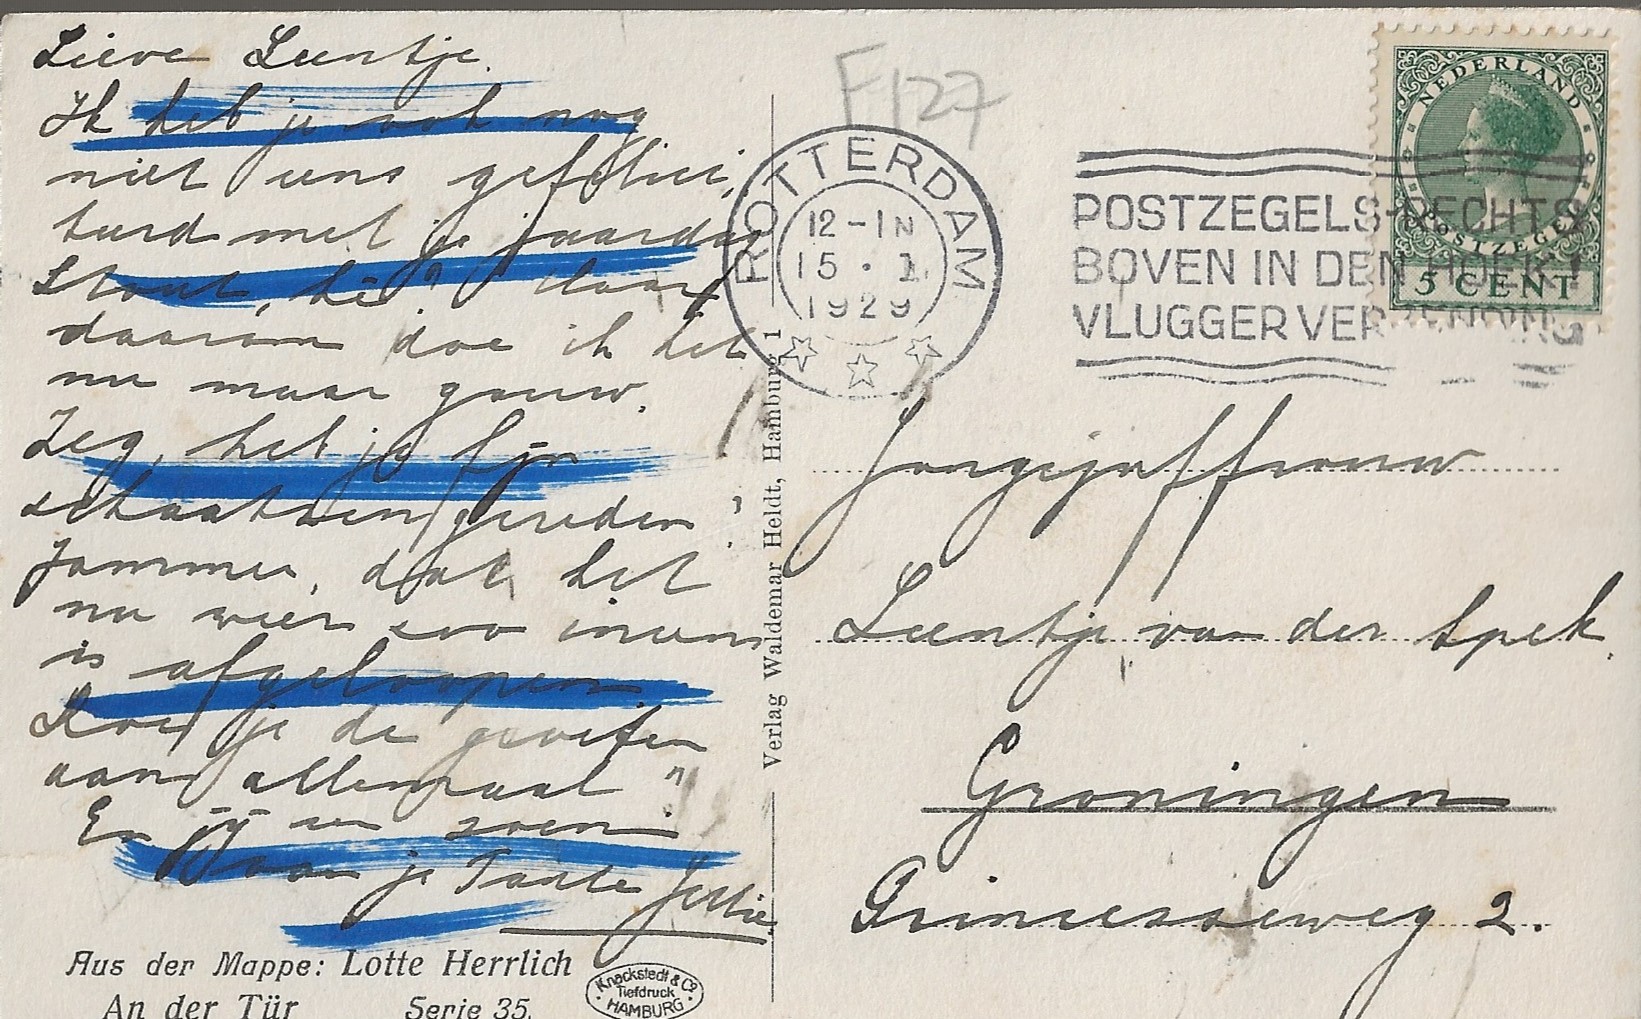 Lieve Leentje.
Ik heb je ook nog
niet eens gefelici,
teerd met je jaardag
Stout, hè? Maar
daarom doe ik het
nu maar gauw.
Zeg, heb je fijn
schaatsen gereden?
Jammer, dat het
nu weer zoo ineens
is afgeloopen
Doe je de groeten
aan allemaal?
En jij een zoen
van je Tante Jettie
Aus der Mappe: Lotte Herrlich
An der Tür Serie 35.
Knackstedt & Co
Tiefdruck
HAMBURG
Verlag Waldemar Heldt, Hamburg 1
F127
ROTTERDAM
12-1N
15.1
1929
POSTZEGELS RECHTS
BOVEN IN DEN HOEK!
VLUGGER VERZENDING
NEDERLAND
POSTZEGEL
5 CENT
Jongejuffrouw
Leentje van der Spek.
Groningen
Princesseweg 2.